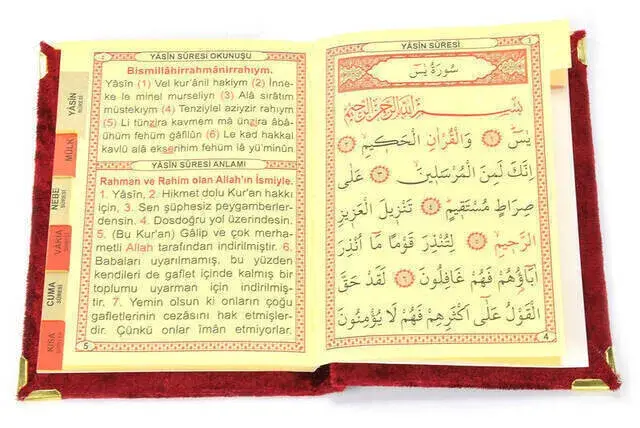 YÂSÎN SÛRESİ OKUNUŞU
Bismillâhirrahmânirrahıym.
Yâsîn (1) Vel kur'ânil hakiym (2) İnne-
ke le minel murseliyn (3) Alâ sirâtim
müstekıym (4) Tenziylel aziyzir rahıym
(5) Li tünzira kavmem mâ ünzira âbâ-
ühüm fehüm gâfilûn (6) Le kad hakkal
kavlü alâ ekserihim fehüm lâ yü'minûn
YÂSÎN SÛRESİ ANLAMI
Rahman ve Rahim olan Allah'ın İsmiyle.
1. Yâsîn, 2. Hikmet dolu Kur'an hakkı
için, 3. Sen şüphesiz peygamberler-
densin. 4. Dosdoğru yol üzerindesin.
5. (Bu Kur'an) Gâlip ve çok merha-
metli Allah tarafından indirilmiştir. 6.
Babaları uyarılmamış, bu yüzden
kendileri de gaflet içinde kalmış bir
toplumu uyarman için indirilmiş-
tir. 7. Yemin olsun ki onların çoğu
gafletlerinin cezasını hak etmişler-
dir. Çünkü onlar îmân etmiyorlar.
5
YÂSÎN
SÛRESİ
MÜLK
NEBE
SÛRESİ
VAKIA
SÛRESİ
CUMA
SÛRESİ
KISA
YÂSÎN SÛRESİ
سُورَةُ يٰسٓ
بِسْمِ اللّٰهِ الرَّحْمٰنِ الرَّحِيمِ
يٰسٓ ﴿١﴾ وَالْقُرْاٰنِ الْحَكِيمِ ﴿٢﴾
اِنَّكَ لَمِنَ الْمُرْسَلِينَ ﴿٣﴾ عَلٰى
صِرَاطٍ مُسْتَقِيمٍ ﴿٤﴾ تَنْزِيلَ الْعَزِيزِ
الرَّحِيمِ ﴿٥﴾ لِتُنْذِرَ قَوْمًا مَٓا اُنْذِرَ
اٰبَٓاؤُهُمْ فَهُمْ غَافِلُونَ ﴿٦﴾ لَقَدْ حَقَّ
الْقَوْلُ عَلٰٓى اَكْثَرِهِمْ فَهُمْ لَا يُؤْمِنُونَ
4